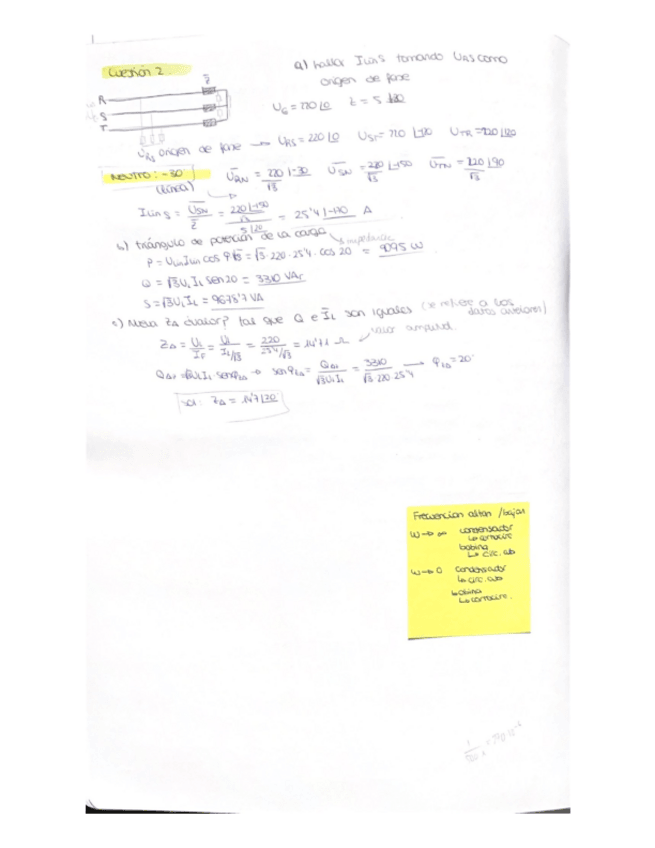 Cuestión 2
a) hallar I lin S tomando URS como
origen de fase
R
S
T
Z̄
UG = 220|0 Z = 5 |20
URS origen de fase → URS = 220|0 UST = 220 |-120 UTR = 220 |120
NEUTRO: -30
(Línea)
ŪRN = 220/√3 |-30 ŪSN = 220/√3 |-150 ŪTN = 220/√3 |90
I lin S = ŪSN/Z̄ = 220|-150/√3 / 5|20 = 25'4 |-170 A
b) triángulo de potencia de la carga
↳ impedancia
P = Ulin Ilin cos φ √3 = √3 · 220 · 25'4 · cos 20 = 9095 W
Q = √3 UL IL sen 20 = 3310 VAr
S = √3 UL IL = 9678'7 VA
c) Nueva ZΔ ¿valor? tal que Q e ĪL son iguales (se refiere a los
datos anteriores)
ZΔ = UL/IF = UL/IL/√3 = 220/25'4/√3 = 14'71 Ω
QΔ2 = √3 UL IL senφZΔ → senφZΔ = QΔ2/√3 UL IL = 3310/√3 · 220 · 25'4 → φZΔ = 20°
sol: ZΔ = 14'7|20
Frecuencias altas / bajas
W → ∞ condensador
↳ cortocirc
bobina
↳ circ. ab
W → 0 condensador
↳ circ. ab
bobina
↳ cortocirc.